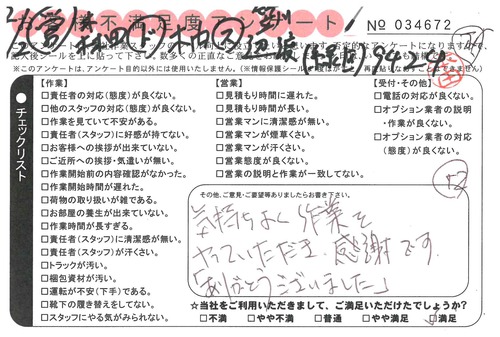 お客様不満足度アンケート
№ 034672
※このアンケートは、アンケート目的以外には使用いたしません。
チェックリスト
【作業】
□責任者の対応(態度)が良くない。
□他のスタッフの対応(態度)が良くない。
□作業を見ていて不安がある。
□責任者(スタッフ)に好感が持てない。
□お客様への挨拶が出来ていない。
□ご近所への挨拶・気遣いが無い。
□作業開始前の内容確認がなかった。
□作業開始時間が遅れた。
□荷物の取り扱いが雑である。
□お部屋の養生が出来ていない。
□作業時間が長すぎる。
□責任者(スタッフ)に清潔感が無い。
□責任者(スタッフ)が汗くさい。
□トラックが汚い。
□梱包資材が汚い。
□運転が不安(下手)である。
□靴下の履き替えをしてない。
□スタッフにやる気がみられない。
【営業】
□見積もり時間に遅れた。
□見積もり時間が長い。
□営業マンに清潔感が無い。
□営業マンが煙草くさい。
□営業マンが汗くさい。
□営業態度が良くない。
□営業の説明と作業が一致してない。
【受付・その他】
□電話の対応が良くない。
□オプション業者の説明・作業が良くない。
□オプション業者の対応(態度)が良くない。
その他、ご意見・ご要望等ありましたらお書き下さい。
気持ちよく作業を
やっていただき、感謝です。
「ありがとうございました」
☆当社をご利用いただきまして、ご満足いただけたでしょうか?
□不満 □やや不満 □普通 □やや満足 □満足